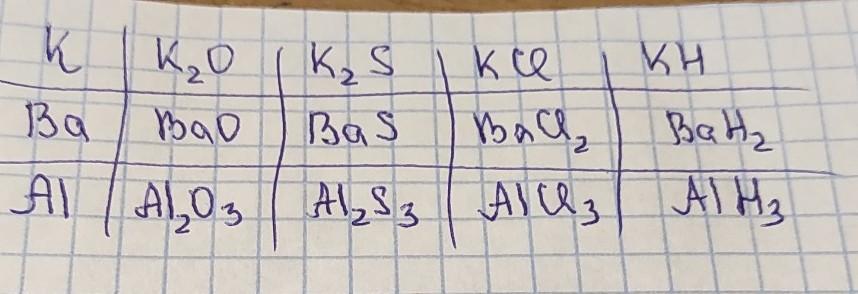 K K₂O K₂S KCl KH
Ba BaO BaS BaCl₂ BaH₂
Al Al₂O₃ Al₂S₃ AlCl₃ AlH₃